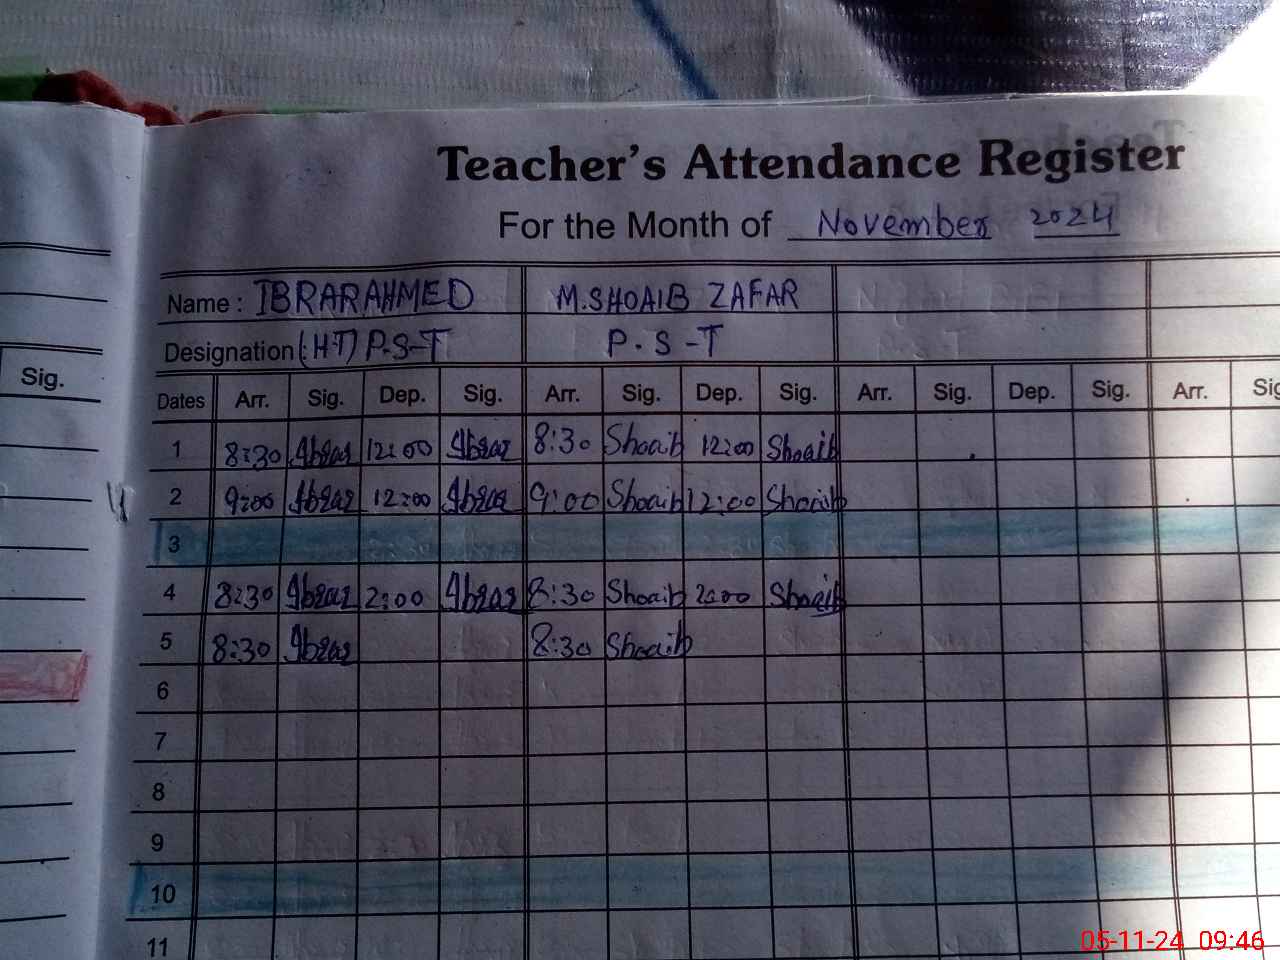 Teacher's Attendance Register
For the Month of November 2024
Name : IBRARAHMED M.SHOAIB ZAFAR
Designation : (HT) P.S-T P.S-T
Sig.
Dates Arr. Sig. Dep. Sig. Arr. Sig. Dep. Sig. Arr. Sig. Dep. Sig. Arr. Sig
1 8:30 Ibrar 12:00 Ibrar 8:30 Shoaib 12:00 Shoaib
2 9:00 Ibrar 12:00 Ibrar 9:00 Shoaib 12:00 Shoaib
3
4 8:30 Ibrar 2:00 Ibrar 8:30 Shoaib 2:00 Shoaib
5 8:30 Ibrar 8:30 Shoaib
6
7
8
9
10
11
05-11-24 09:46